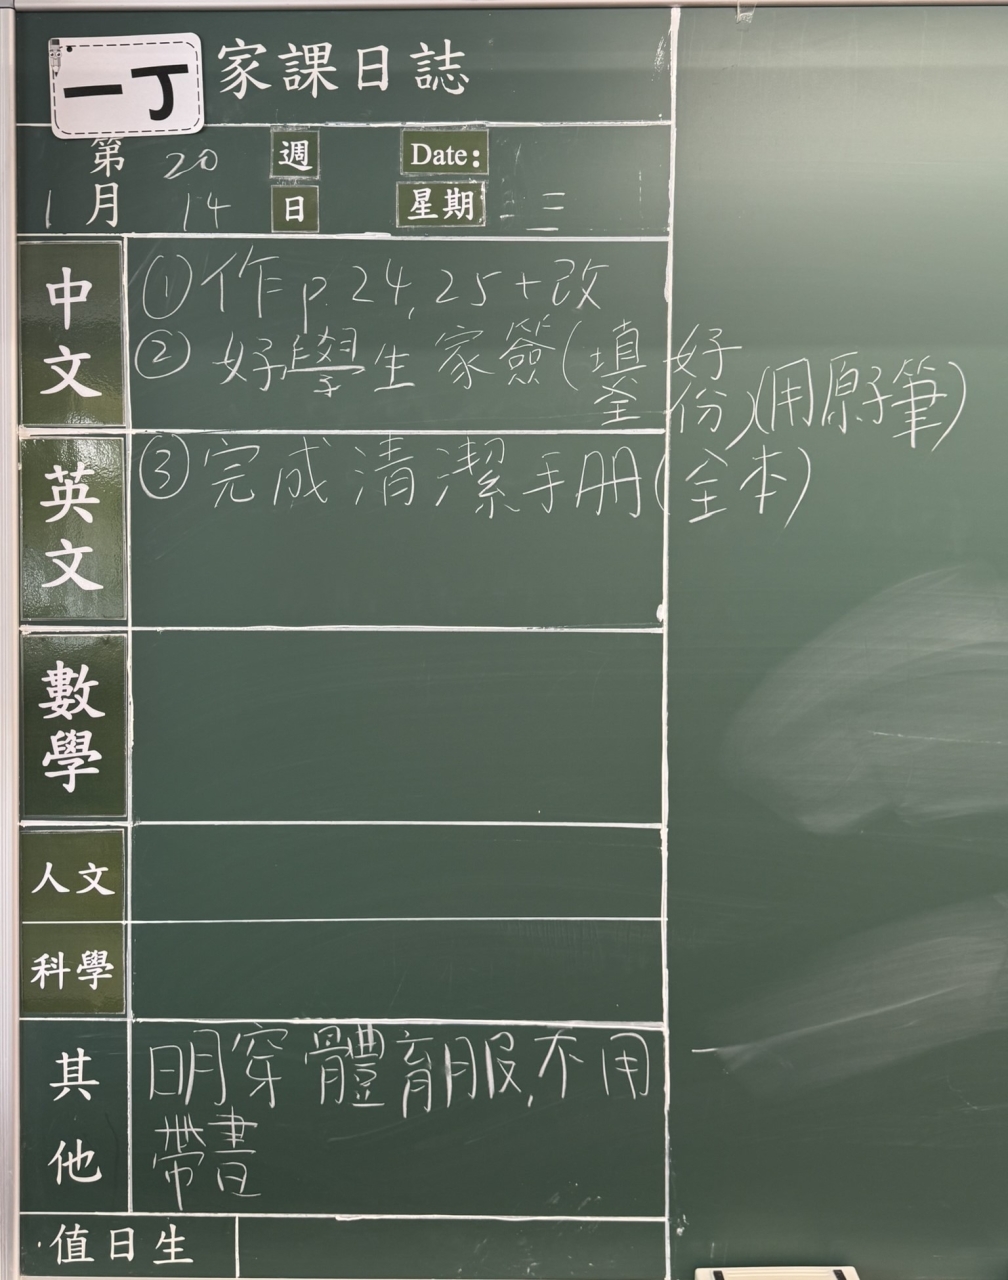 一丁 家課日誌
第 20 週 Date:
1月 14 日 星期 三
中文
①作 p.24, 25+改
②好學生家簽(填好全份)(用原子筆)
英文
③完成清潔手冊(全本)
數學
人文
科學
其他
明穿體育服,不用
帶書
值日生